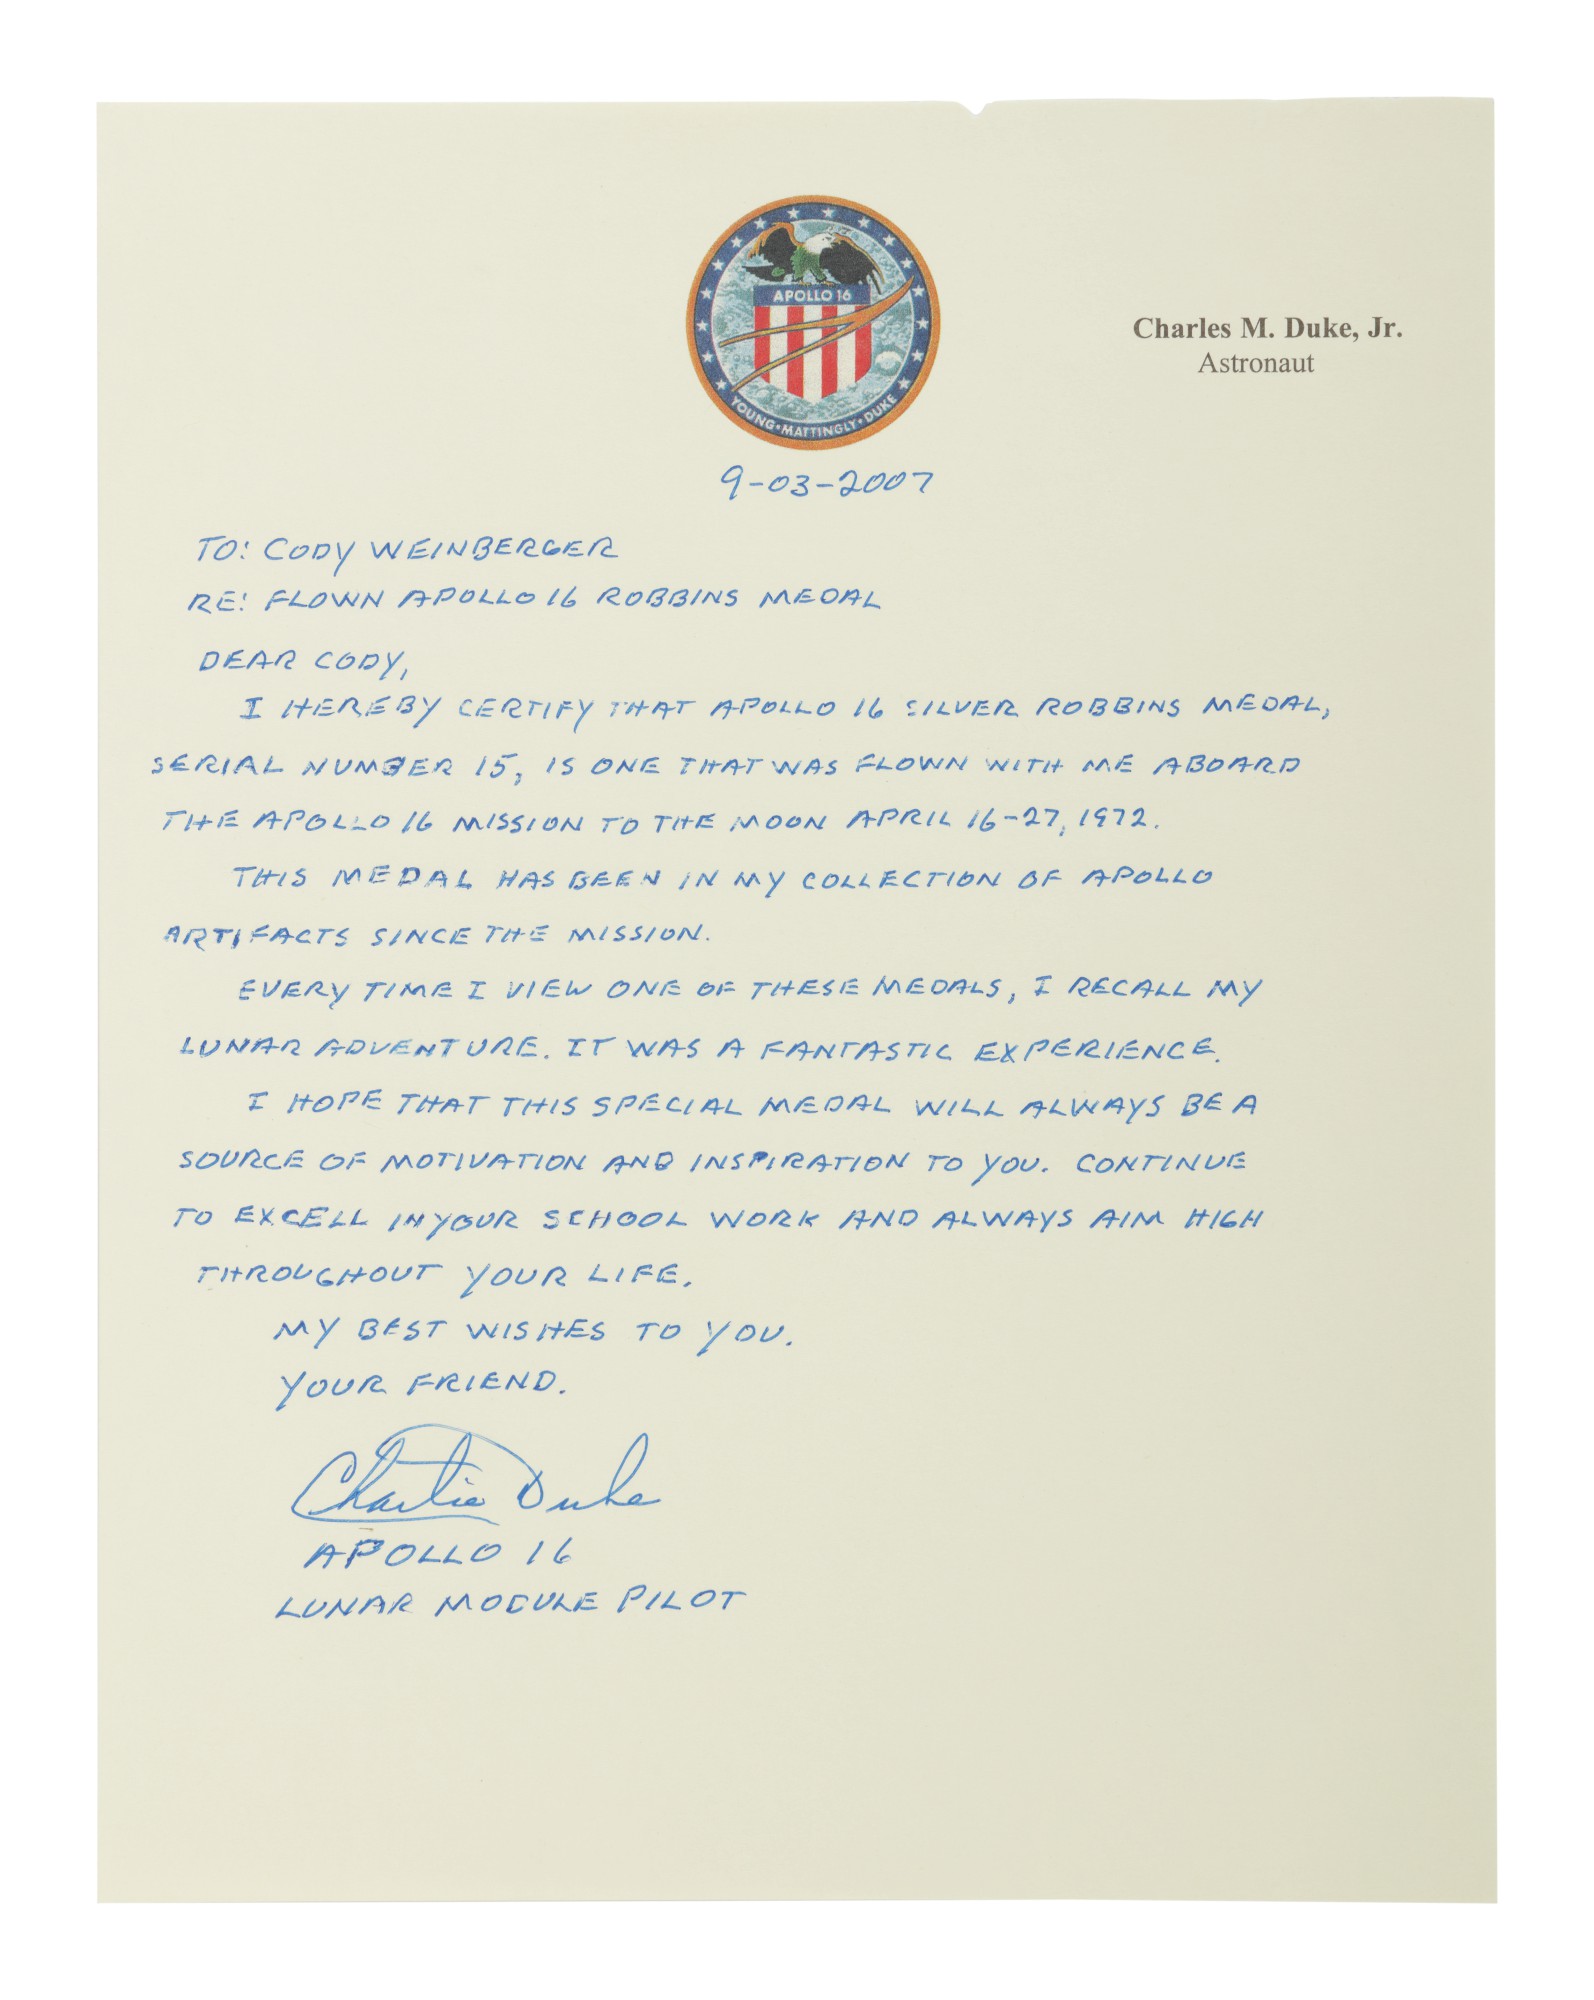 APOLLO 16
YOUNG • MATTINGLY • DUKE
Charles M. Duke, Jr.
Astronaut
9-03-2007
TO: CODY WEINBERGER
RE: FLOWN APOLLO 16 ROBBINS MEDAL
DEAR CODY,
I HEREBY CERTIFY THAT APOLLO 16 SILVER ROBBINS MEDAL,
SERIAL NUMBER 15, IS ONE THAT WAS FLOWN WITH ME ABOARD
THE APOLLO 16 MISSION TO THE MOON APRIL 16-27, 1972.
THIS MEDAL HAS BEEN IN MY COLLECTION OF APOLLO
ARTIFACTS SINCE THE MISSION.
EVERY TIME I VIEW ONE OF THESE MEDALS, I RECALL MY
LUNAR ADVENTURE. IT WAS A FANTASTIC EXPERIENCE.
I HOPE THAT THIS SPECIAL MEDAL WILL ALWAYS BE A
SOURCE OF MOTIVATION AND INSPIRATION TO YOU. CONTINUE
TO EXCELL IN YOUR SCHOOL WORK AND ALWAYS AIM HIGH
THROUGHOUT YOUR LIFE.
MY BEST WISHES TO YOU.
YOUR FRIEND.
Charlie Duke
APOLLO 16
LUNAR MODULE PILOT